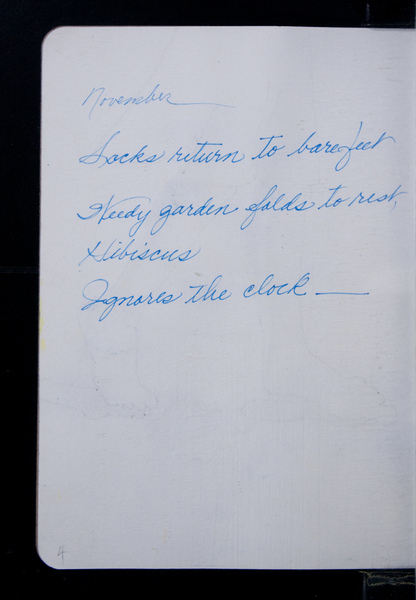 November
Socks return to barefeet
Weedy garden folds to rest,
Hibiscus
Ignores the clock —
4